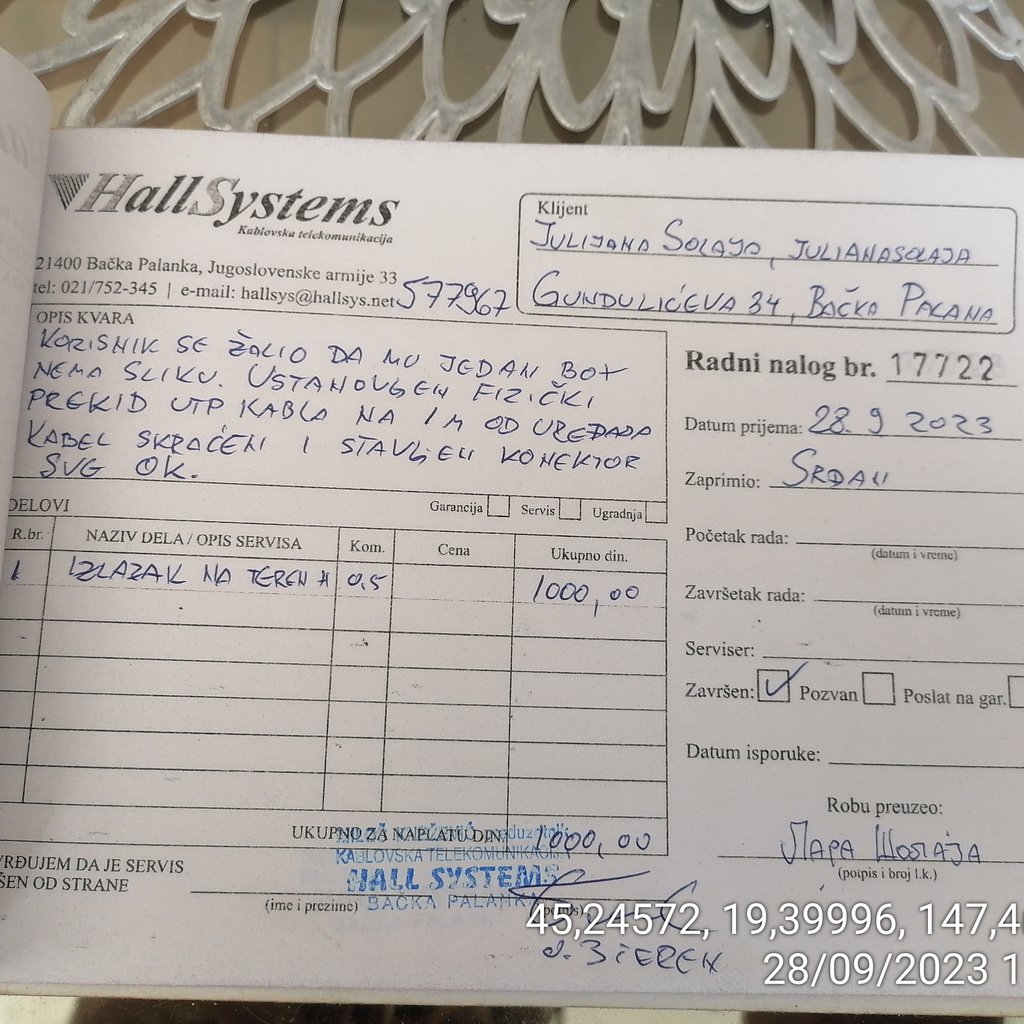 HallSystems
Kablovska telekomunikacija
21400 Bačka Palanka, Jugoslovenske armije 33
tel: 021/752-345 | e-mail: hallsys@hallsys.net 577967
Klijent
JULIJANA SOLAJA, JULIANASOLAJA
GUNDULIĆEVA 34, BAČKA PALANA
OPIS KVARA
KORISNIK SE ŽALIO DA MU JEDAN BOX
NEMA SLIKU. USTANOVLJEN FIZIČKI
PREKID UTP KABLA NA 1M OD UREĐAJA
KABEL SKRAĆEN I STAVLJEN KONEKTOR
SVE OK.
Radni nalog br. 17722
Datum prijema: 28.9 2023
Zaprimio: SRĐAN
Početak rada:
(datum i vreme)
Završetak rada:
(datum i vreme)
Serviser:
Završen: Pozvan Poslat na gar.
Datum isporuke:
Robu preuzeo:
ЛАРА ШОЛАЈА
(potpis i broj l.k.)
DELOVI Garancija Servis Ugradnja
R.br. NAZIV DELA / OPIS SERVISA Kom. Cena Ukupno din.
1 IZLAZAK NA TEREN H 0,5 1000,00
UKUPNO ZA NAPLATU DIN. 1000,00
KABLOVSKA TELEKOMUNIKACIJA
HALL SYSTEMS
BAČKA PALANKA
VRĐUJEM DA JE SERVIS
ŠEN OD STRANE
(ime i prezime)
45,24572, 19,39996, 147,4
28/09/2023 1